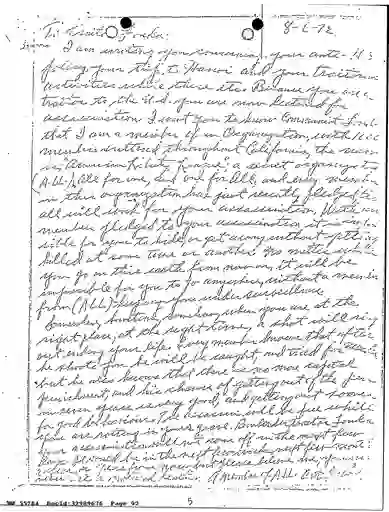 To Traitor Fonda: 8-6-72
I am writing you concerning your anti-U.S.
your trip to Hanoi and your traitorous
activities while there etc. Because you are a
traitor to the U.S. you are now listed for
assassination. I want you to know Communist Fonda
that I am a member of an Organization, with
members scattered throughout California, the name
is a secret organization
(A-L-L), All for one, and one for All, and every member
in this organization has just recently pledged
all will work for your assassination, With every
member pledged to your assassination it is
for you to hide or get away without getting
killed at some time or another. No matter where
you go on this earth from now on, it will be
impossible for you to go anywhere, without a member
from (ALL) having you under surveillance
Someday, sometime, somehow when you are at the
right place, at the right time, a shot will ring
out ending your life. Every member knows that after
he shoots you he will be caught, and tried for
but he also knows that there is no more capital
punishment, and his chance of getting out of the pen
in seven years is very good, and getting out sooner
for good behaviour. The assassin will be free while
you are rotting in your grave. Remember traitor Fonda
your assassination will not come off in the next few
days, it could be in the next
but please believe me, you
A Member of ALL
NW 55784 DocId:32989676 Page 92
5